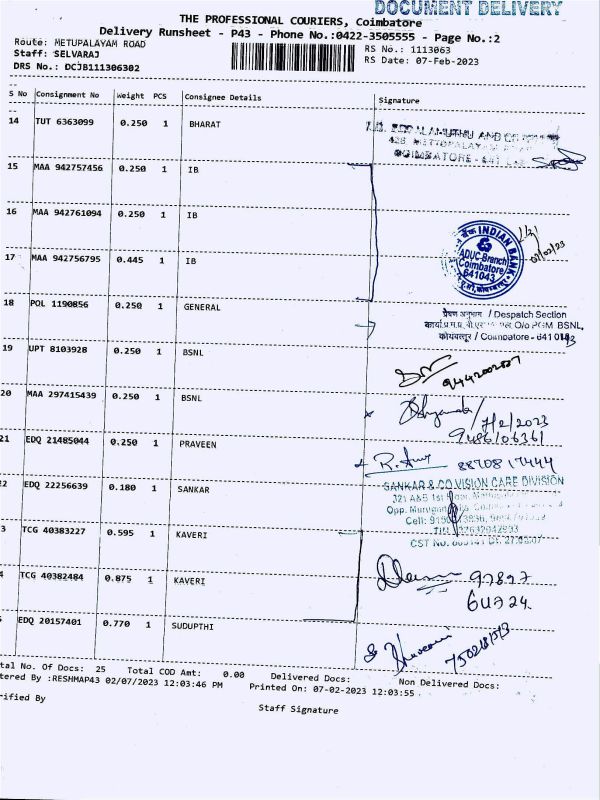 DOCUMENT DELIVERY
THE PROFESSIONAL COURIERS, Coimbatore
Delivery Runsheet - P43 - Phone No.:0422-3505555 - Page No.:2
Route: METUPALAYAM ROAD
Staff: SELVARAJ
DRS No.: DCJB111306302
RS No.: 1113063
RS Date: 07-Feb-2023
S No Consignment No Weight PCS Consignee Details Signature
14 TUT 6363099 0.250 1 BHARAT
COIMBATORE - 641
15 MAA 942757456 0.250 1 IB
16 MAA 942761094 0.250 1 IB
INDIAN BANK
ADUC-Branch
Coimbatore
641043
07/02/23
17 MAA 942756795 0.445 1 IB
18 POL 1190856 0.250 1 GENERAL
प्रेषण अनुभाग / Despatch Section
O/o PGM BSNL,
कोयंबत्तूर / Coimbatore - 641 043
19 UPT 8103928 0.250 1 BSNL
9442002887
20 MAA 297415439 0.250 1 BSNL
7/2/2023
9486106361
21 EDQ 21485044 0.250 1 PRAVEEN
8870817444
22 EDQ 22256639 0.180 1 SANKAR
SANKAR & CO VISION CARE DIVISION
321 A&B 1st Floor,
Opp. Murugan
Cell:
CST No.
3 TCG 40383227 0.595 1 KAVERI
4 TCG 40382484 0.875 1 KAVERI
97897
64724
EDQ 20157401 0.770 1 SUDUPTHI
tal No. Of Docs: 25 Total COD Amt: 0.00 Delivered Docs: Non Delivered Docs:
tered By :RESHMAP43 02/07/2023 12:03:46 PM Printed On: 07-02-2023 12:03:55
rified By
Staff Signature